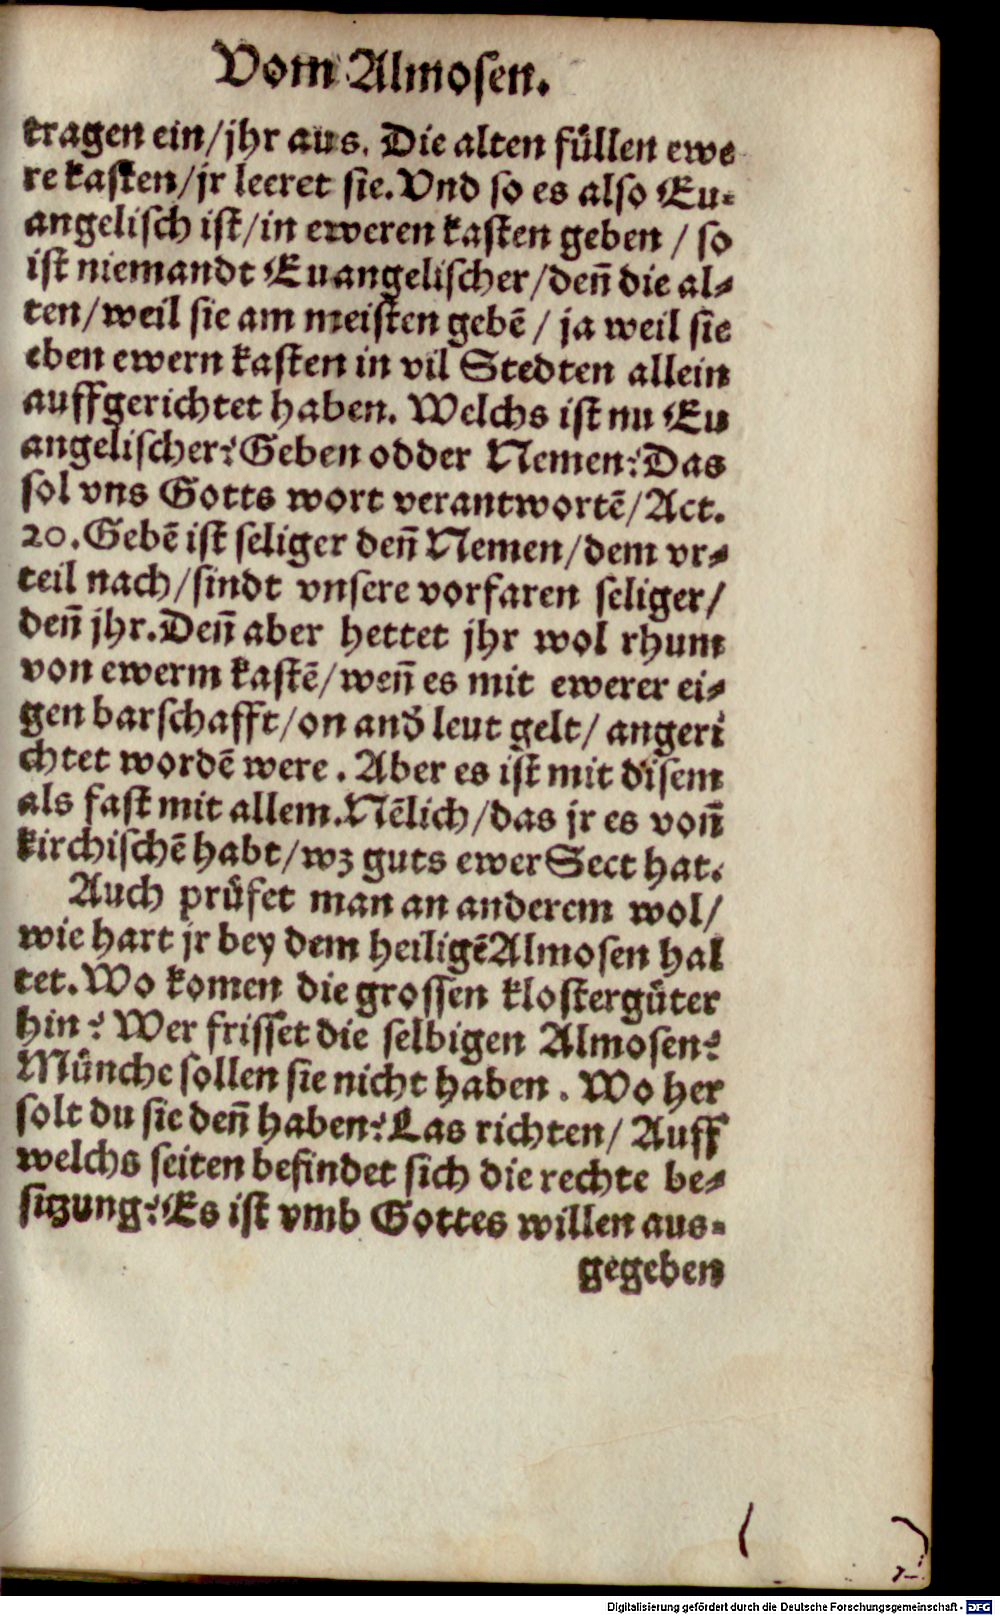 Vom Almosen.
tragen ein/jhr aus. Die alten füllen ewe
re kasten/jr leeret sie. Vnd so es also Eu-
angelisch ist/in eweren kasten geben / so
ist niemandt Euangelischer/den̄ die al-
ten/weil sie am meisten gebē / ja weil sie
eben ewern kasten in vil Stedten allein
auffgerichtet haben. Welchs ist nu Eu
angelischer? Geben odder Nemen? Das
sol vns Gotts wort verantwortē/Act.
20. Gebē ist seliger den̄ Nemen/dem vr-
teil nach/sindt vnsere vorfaren seliger/
den̄ jhr. Den̄ aber hettet jhr wol rhum
von ewerm kastē/wen̄ es mit ewerer ei-
gen barschafft/on and̄ leut gelt/ angeri
chtet wordē were. Aber es ist mit disem
als fast mit allem. Nēlich/das jr es von̄
kirchischē habt/wz guts ewer Sect hat.
Auch prüfet man an anderem wol/
wie hart jr bey dem heiligē Almosen hal
tet. Wo komen die grossen klostergüter
hin? Wer frisset die selbigen Almosen?
Münche sollen sie nicht haben. Wo her
solt du sie den̄ haben? Las richten/ Auff
welchs seiten befindet sich die rechte be-
sitzung? Es ist vmb Gottes willen aus-
gegeben
Digitalisierung gefördert durch die Deutsche Forschungsgemeinschaft - DFG